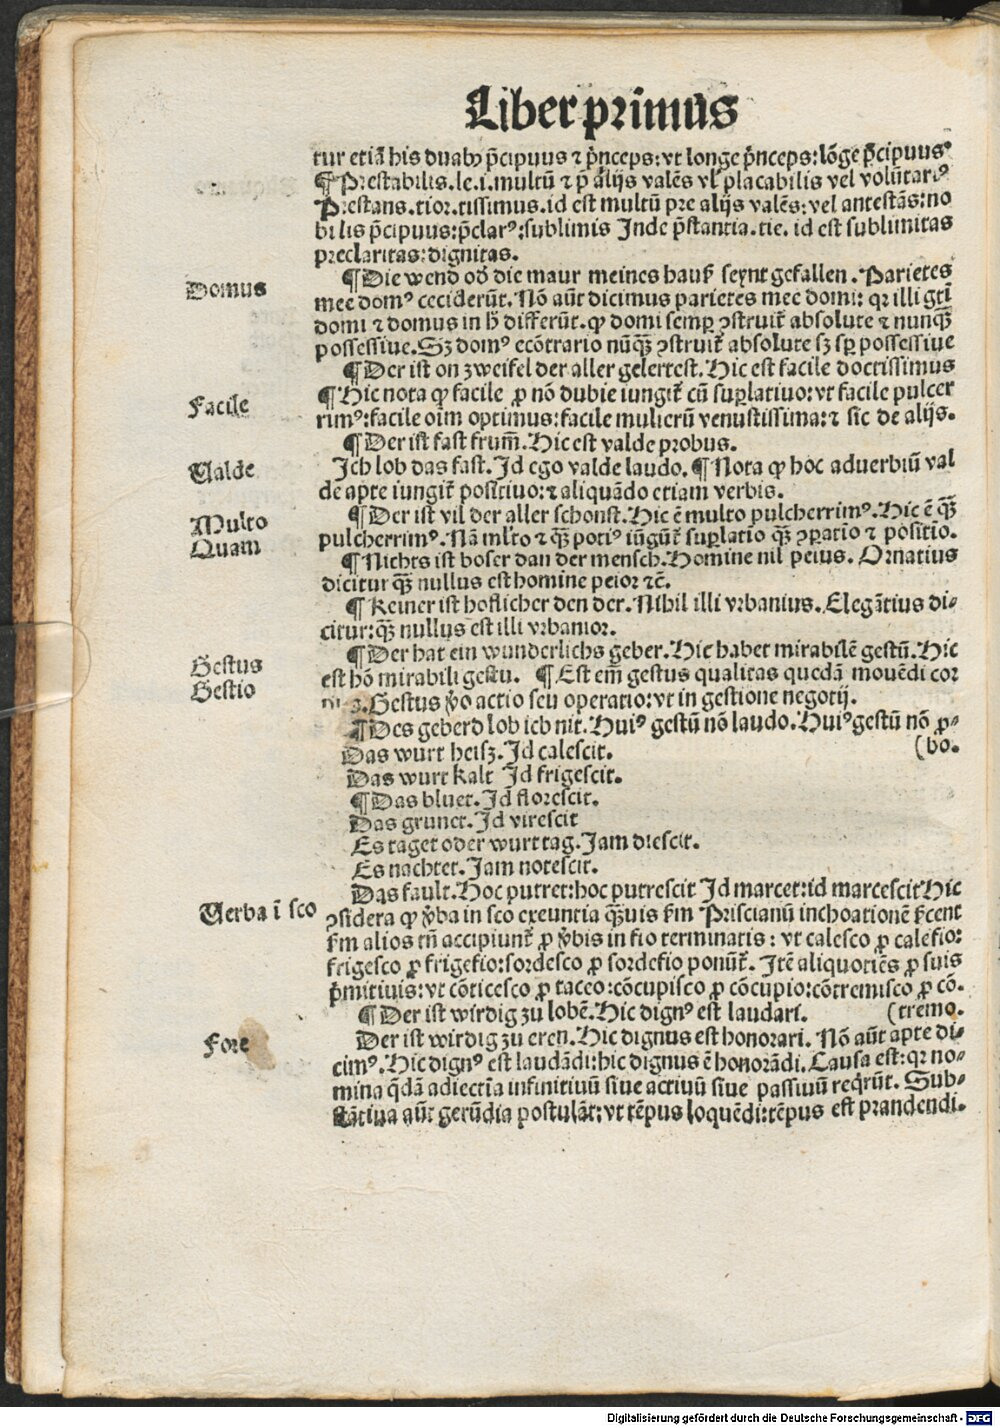 Liber primus
tur etiã his duabꝰ p̃cipuus ⁊ p̃nceps: vt longe p̃nceps: lõge p̃cipuusꝰ
¶ Prestabilis.le.i.multũ ⁊ p̃ alijs valẽs vl̓ placabilis vel volũtariꝰ
Prestans.tior.tissimus.id est multũ pre alijs valẽs: vel antestãs: no
bilis p̃cipuus: p̃clarꝰ: sublimis Inde p̃stantia.tie. id est sublimitas
preclaritas: dignitas.
Domus
¶ Die wend oď die maur meines hauß seynt gefallen. Parietes
mee domꝰ ceciderũt. Nõ aũt dicimus parietes mee domi: qꝛ illi gtĩ
domi ⁊ domus in h̃ differũt. ꝙ domi semꝑ ꝯstruit̃ absolute ⁊ nunq̃ꝫ
possessiue. Sꝫ domꝰ ecõtrario nũq̃ꝫ ꝯstruit̃ absolute sꝫ sꝑ possessiue
¶ Der ist on zweifel der aller gelertest. Hic est facile doctissimus
Facile
¶ Hic nota ꝙ facile ꝓ nõ dubie iungit̃ cũ suꝑlatiuo: vt facile pulcer
rimꝰ: facile oĩm optimus: facile mulierũ venustissima: ⁊ sic de alijs.
¶ Der ist fast frum̃. Hic est valde probus.
Valde
Ich lob das fast. Id ego valde laudo. ¶ Nota ꝙ hoc aduerbiũ val
de apte iungit̃ positiuo: ⁊ aliquãdo etiam verbis.
Multo
¶ Der ist vil der aller schonst. Hic ẽ multo pulcherrimꝰ. Hic ẽ q̃ꝫ
Quam
pulcherrimꝰ. Nã ml̓to ⁊ q̃ꝫ potiꝰ iũgũt̃ suꝑlatio q̃ꝫ ꝯꝑatio ⁊ positio.
¶ Nichts ist boser dan der mensch. Homine nil peius. Ornatius
dicitur q̃ꝫ nullus est homine peior ⁊c̃.
¶ Keiner ist hoflicher den der. Nihil illi vrbanius. Elegãtius di⸗
citur: q̃ꝫ nullus est illi vrbanior.
Gestus
¶ Der hat ein wunderlichs geber. Hic habet mirabilẽ gestũ. Hic
Gestio
est hõ mirabili gestu. ¶ Est em̃ gestus qualitas quedã mouẽdi cor
Gestus ꝟo actio seu operatio: vt in gestione negotij.
¶ Des geberd lob ich nit. Huiꝰ gestũ nõ laudo. Huiꝰ gestũ nõ ꝓ⸗
Das wurt heisz. Id calescit. (bo.
Das wurt kalt Id frigescit.
¶ Das bluet. Id florescit.
Das grunet. Id virescit
Es taget oder wurt tag. Iam diescit.
Es nachtet. Iam notescit.
Das fault. Hoc putret: hoc putrescit Id marcet: id marcescit Hic
Verba ĩ sco
ꝯsidera ꝙ ꝟba in sco exeuntia q̃uis ẜm Priscianũ inchoationẽ
ẜm alios tñ accipiunt̃ ꝓ ꝟbis in fio terminatis: vt calesco ꝓ calefio:
frigesco ꝓ frigefio: sordesco ꝓ sordefio ponũt̃. Itẽ aliquotiẽs ꝓ suis
p̃mitiuis: vt cõticesco ꝓ taceo: cõcupisco ꝓ cõcupio: cõtremisco ꝓ cõ.
¶ Der ist wirdig zu lobẽ. Hic dignꝰ est laudari. (tremo.
Fore
Der ist wirdig zu eren. Hic dignus est honorari. Nõ aũt apte di⸗
cimꝰ. Hic dignꝰ est laudãdi: hic dignus ẽ honorãdi. Causa est: qꝛ no⸗
mina q̃dã adiectĩa infinitiuũ siue actiuũ siue passiuũ req̃rũt. Sub⸗
stãtiua aũt gerũdia postulãt: vt tẽpus loquẽdi: tẽpus est prandendi.
Digitalisierung gefördert durch die Deutsche Forschungsgemeinschaft - DFG